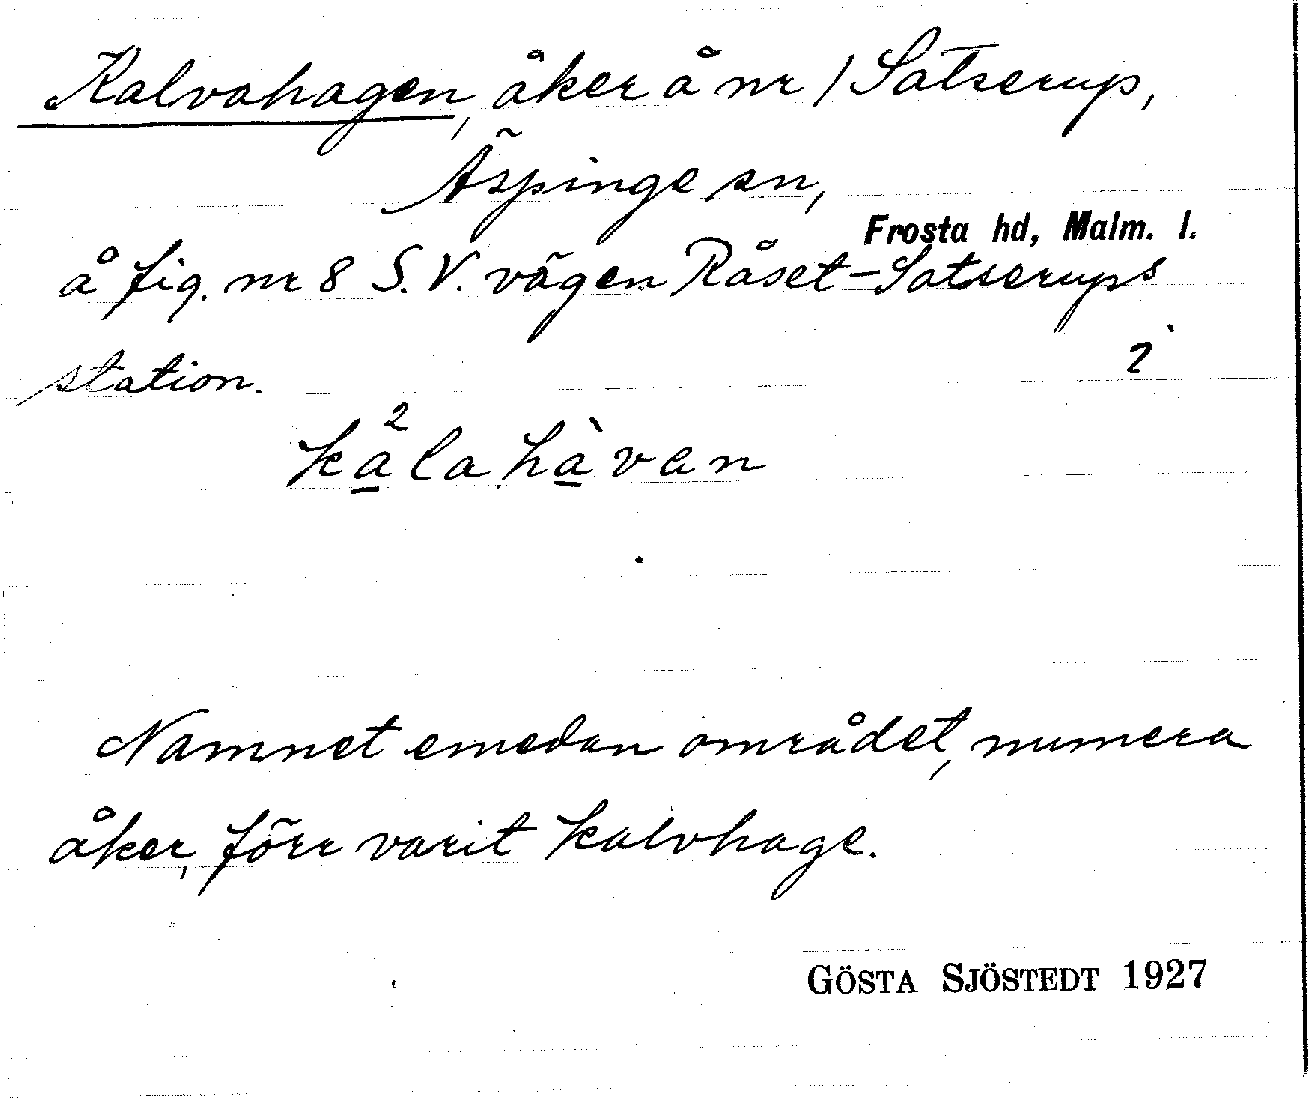 Kalvahagen, åker å nr 1 Satserup,
Äspinge sn,
Frosta hd, Malm. l.
å fig. nr 8 S.V. vägen Råset-Satserups
station.
2
ka²la hàvan
Namnet emedan området, numera
åker, förr varit kalvhage.
GÖSTA SJÖSTEDT 1927